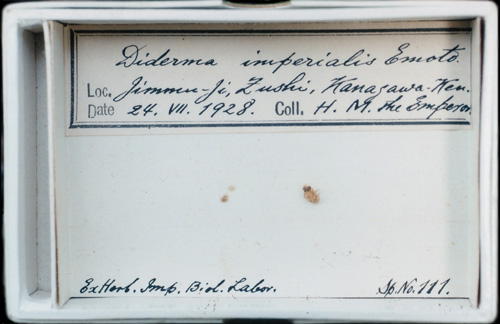 Diderma imperialis Emoto.
Loc. Jimmu-Ji, Zushi, Kanagawa-Ken.
Date 24. VII. 1928. Coll. H. M. the Emperor
Ex Herb. Imp. Biol. Labor. Sp. No. 111.